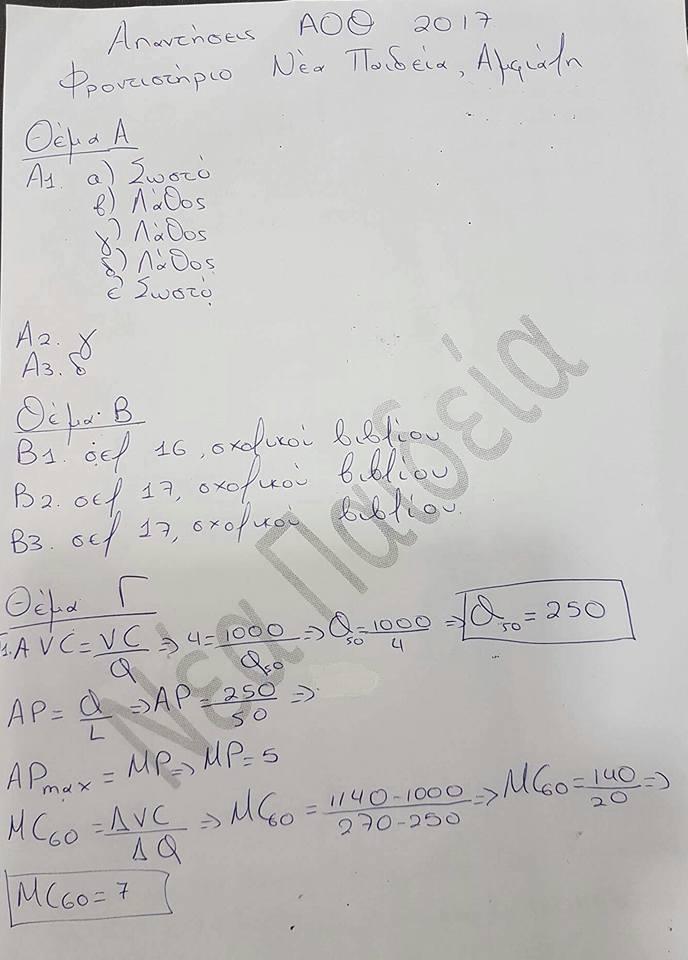 Απαντήσεις ΑΟΘ 2017
Φροντιστήριο Νέα Παιδεία, Αμφιάλη
Θέμα Α
Α1. α) Σωστό
β) Λάθος
γ) Λάθος
δ) Λάθος
ε Σωστό
Α2. γ
Α3. δ
Θέμα Β
Β1. σελ 16, σχολικού βιβλίου
Β2. σελ 17, σχολικού βιβλίου
Β3. σελ 17, σχολικού βιβλίου.
Θέμα Γ
1. AVC = VC/Q => 4 = 1000/Q50 => Q50 = 1000/4 => Q50 = 250
AP = Q/L => AP = 250/50 =>
APmax = MP => MP = 5
MC60 = ΔVC/ΔQ => MC60 = 1140-1000/270-250 => MC60 = 140/20 =>
MC60 = 7
Νέα Παιδεία